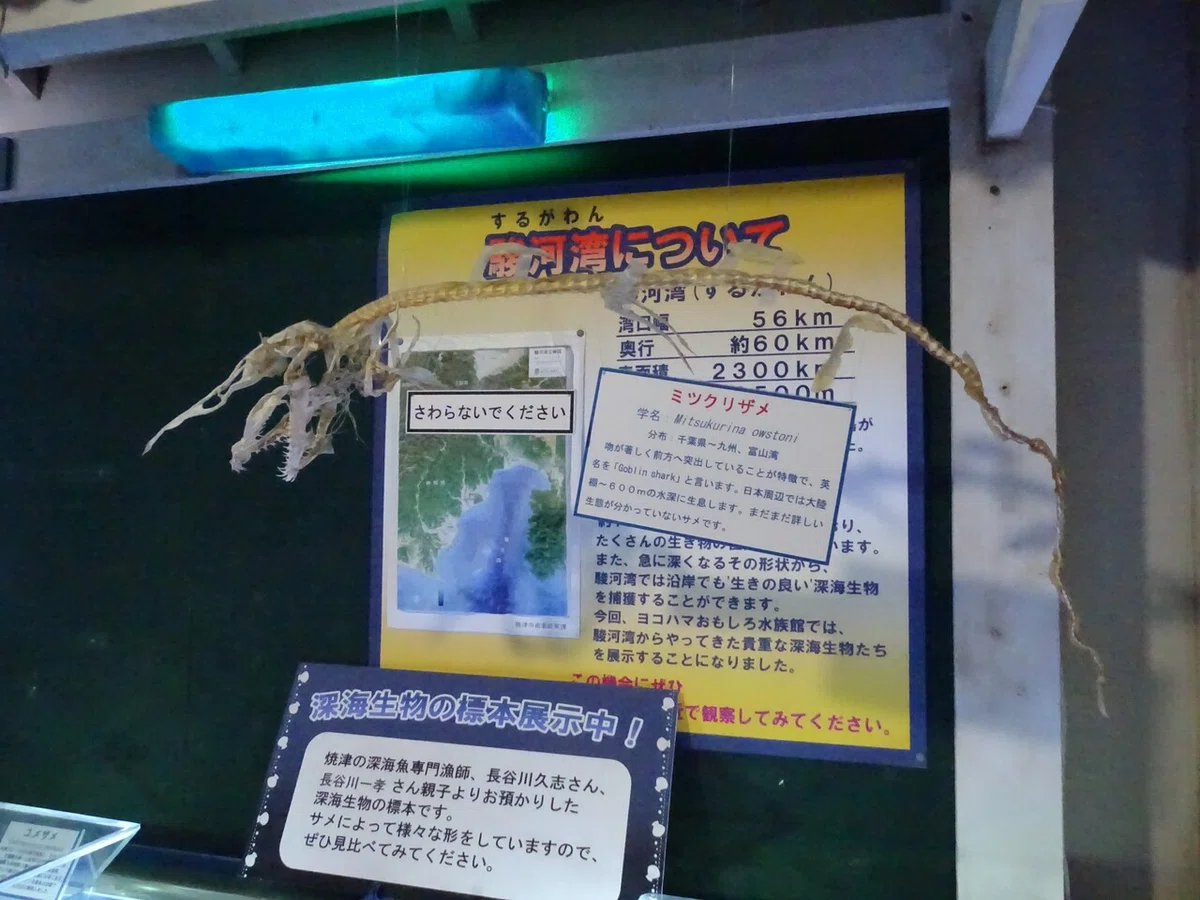 するがわん
駿河湾について
河湾(するがわん)
湾口幅 56km
奥行 約60km
2300km
500m
さわらないでください
ミツクリザメ
学名:Mitsukurina owstoni
分布:千葉県〜九州、富山湾
吻が著しく前方へ突出していることが特徴で、英
名を「Goblin shark」と言います。日本周辺では大陸
棚〜600mの水深に生息します。まだまだ詳しい
生態が分かっていないサメです。
たくさんの生き物
います。
また、急に深くなるその形状から、
駿河湾では沿岸でも'生きの良い'深海生物
を捕獲することができます。
今回、ヨコハマおもしろ水族館では、
駿河湾からやってきた貴重な深海生物たち
を展示することになりました。
この機会にぜひ
で観察してみてください。
深海生物の標本展示中!
焼津の深海魚専門漁師、長谷川久志さん、
長谷川一孝さん親子よりお預かりした
深海生物の標本です。
サメによって様々な形をしていますので、
ぜひ見比べてみてください。
ユメザメ